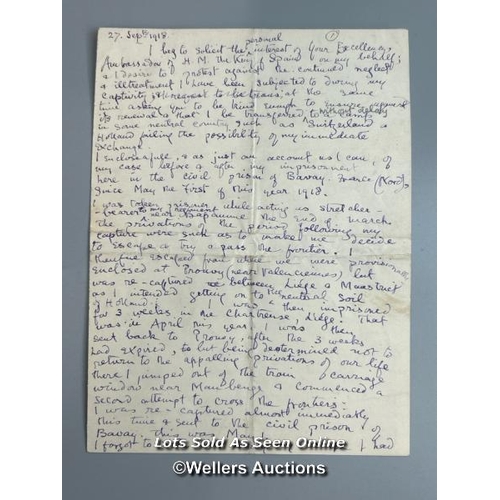 27. Sept 1918. ①
personal
I beg to solicit the interest of Your Excellency,
Ambassador of H.M. the King of Spain on my behalf;
& I desire to protest against the continued neglect
& illtreatment I have been subjected to during my
captivity, & to request to be trans at the same
time asking you to be kind enough to
without delay
its renewal & that I be transferred to a camp
in some neutral country such as Switzerland or
Holland failing the possibility of my immediate
exchange.
I enclose full & as just an account as I can, of
my case before & after my imprisonment
here in the civil prison of Bavay. France (Nord)
Since May the First of this year 1918.
I was taken prisoner while acting as stretcher
-bearer to my regiment near Bapaume the end of March
The privations, the period following my
capture were such as to make me decide
to escape & try & pass the frontier. I
therefore escaped from where we were provisionally
enclosed at Prouvy (near Valenciennes) but
was re-captured between Liège & Maastricht
as I intended getting on to the neutral soil
of Holland: I was then imprisoned
for 3 weeks in the Chartreuse, Liège. That
was in April this year. I was then
sent back to Prouvy, after the 3 weeks
had expired, & but being determined not to
return to the appalling privations of our life
there I jumped out of the train (carriage
window near Maubeuge & commenced a
second attempt to cross the frontiers.
I was re-captured almost immediately
this time & sent to the civil prison of
Bavay. This was May
I forgot to I had
Lots Sold As Seen Online
©Wellers Auctions